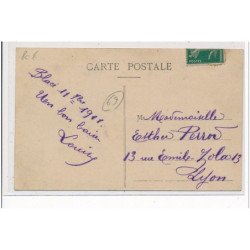 R.6
CARTE POSTALE
69
Blacé 11 9bre 1911
Un bon baiser
Louis
Mademoiselle
Esther Perrin
13 rue Emile Zola 13
Lyon